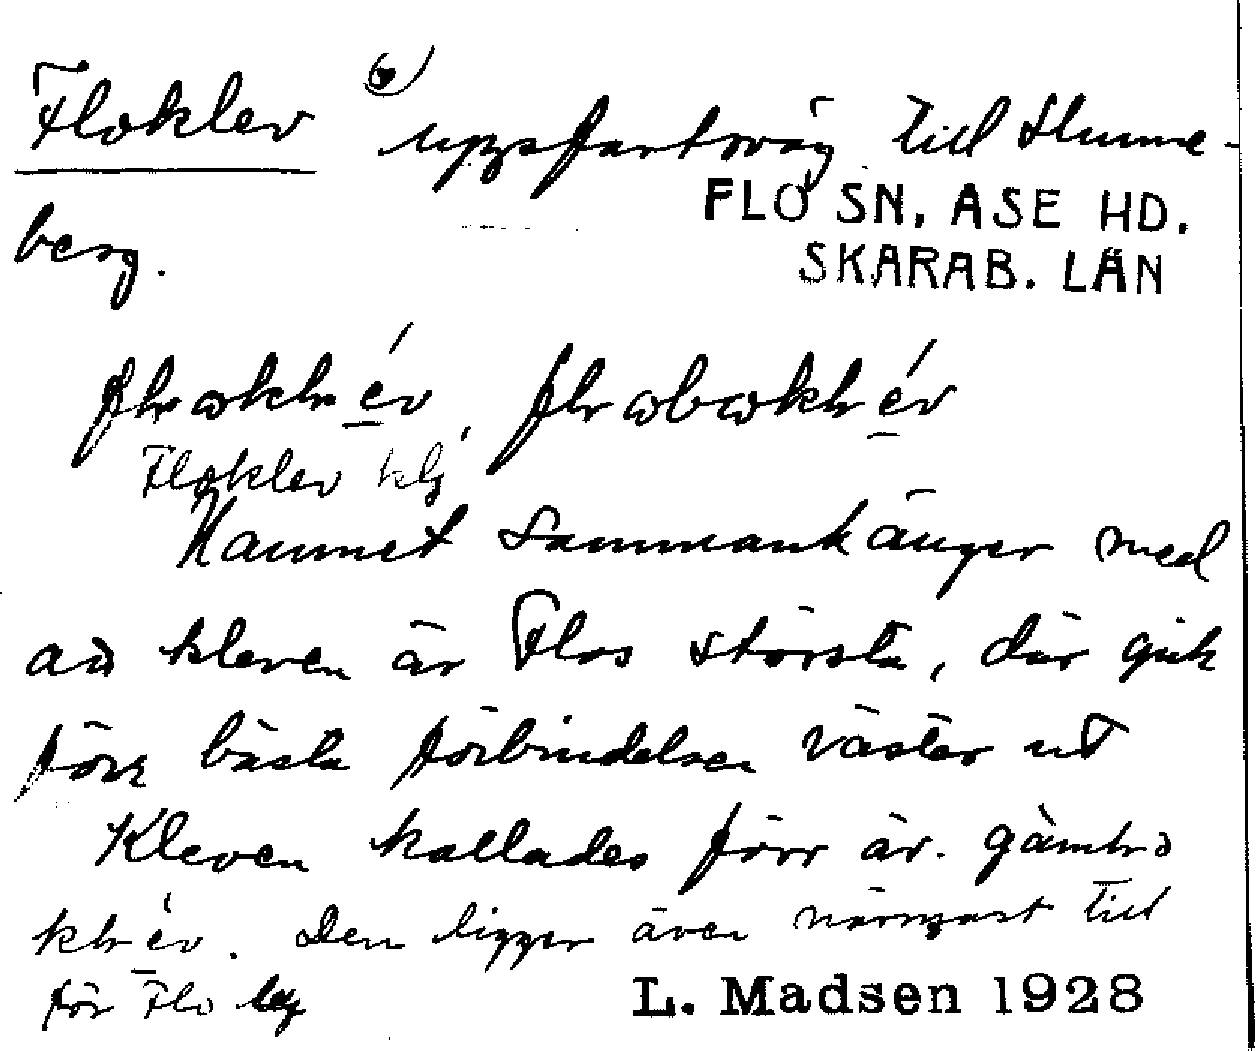 Floklev uppfartsväg till Hunne-
FLO SN. ÅSE HD.
berg.
SKARAB. LÄN
Floklev
Namnet sammanhänger med
att kleven är Flos största, där gick
förr bästa förbindelsen väster ut
Kleven kallades förr är. gàmlɿə
Den ligger även närmast till
för Flo by
L. Madsen 1928